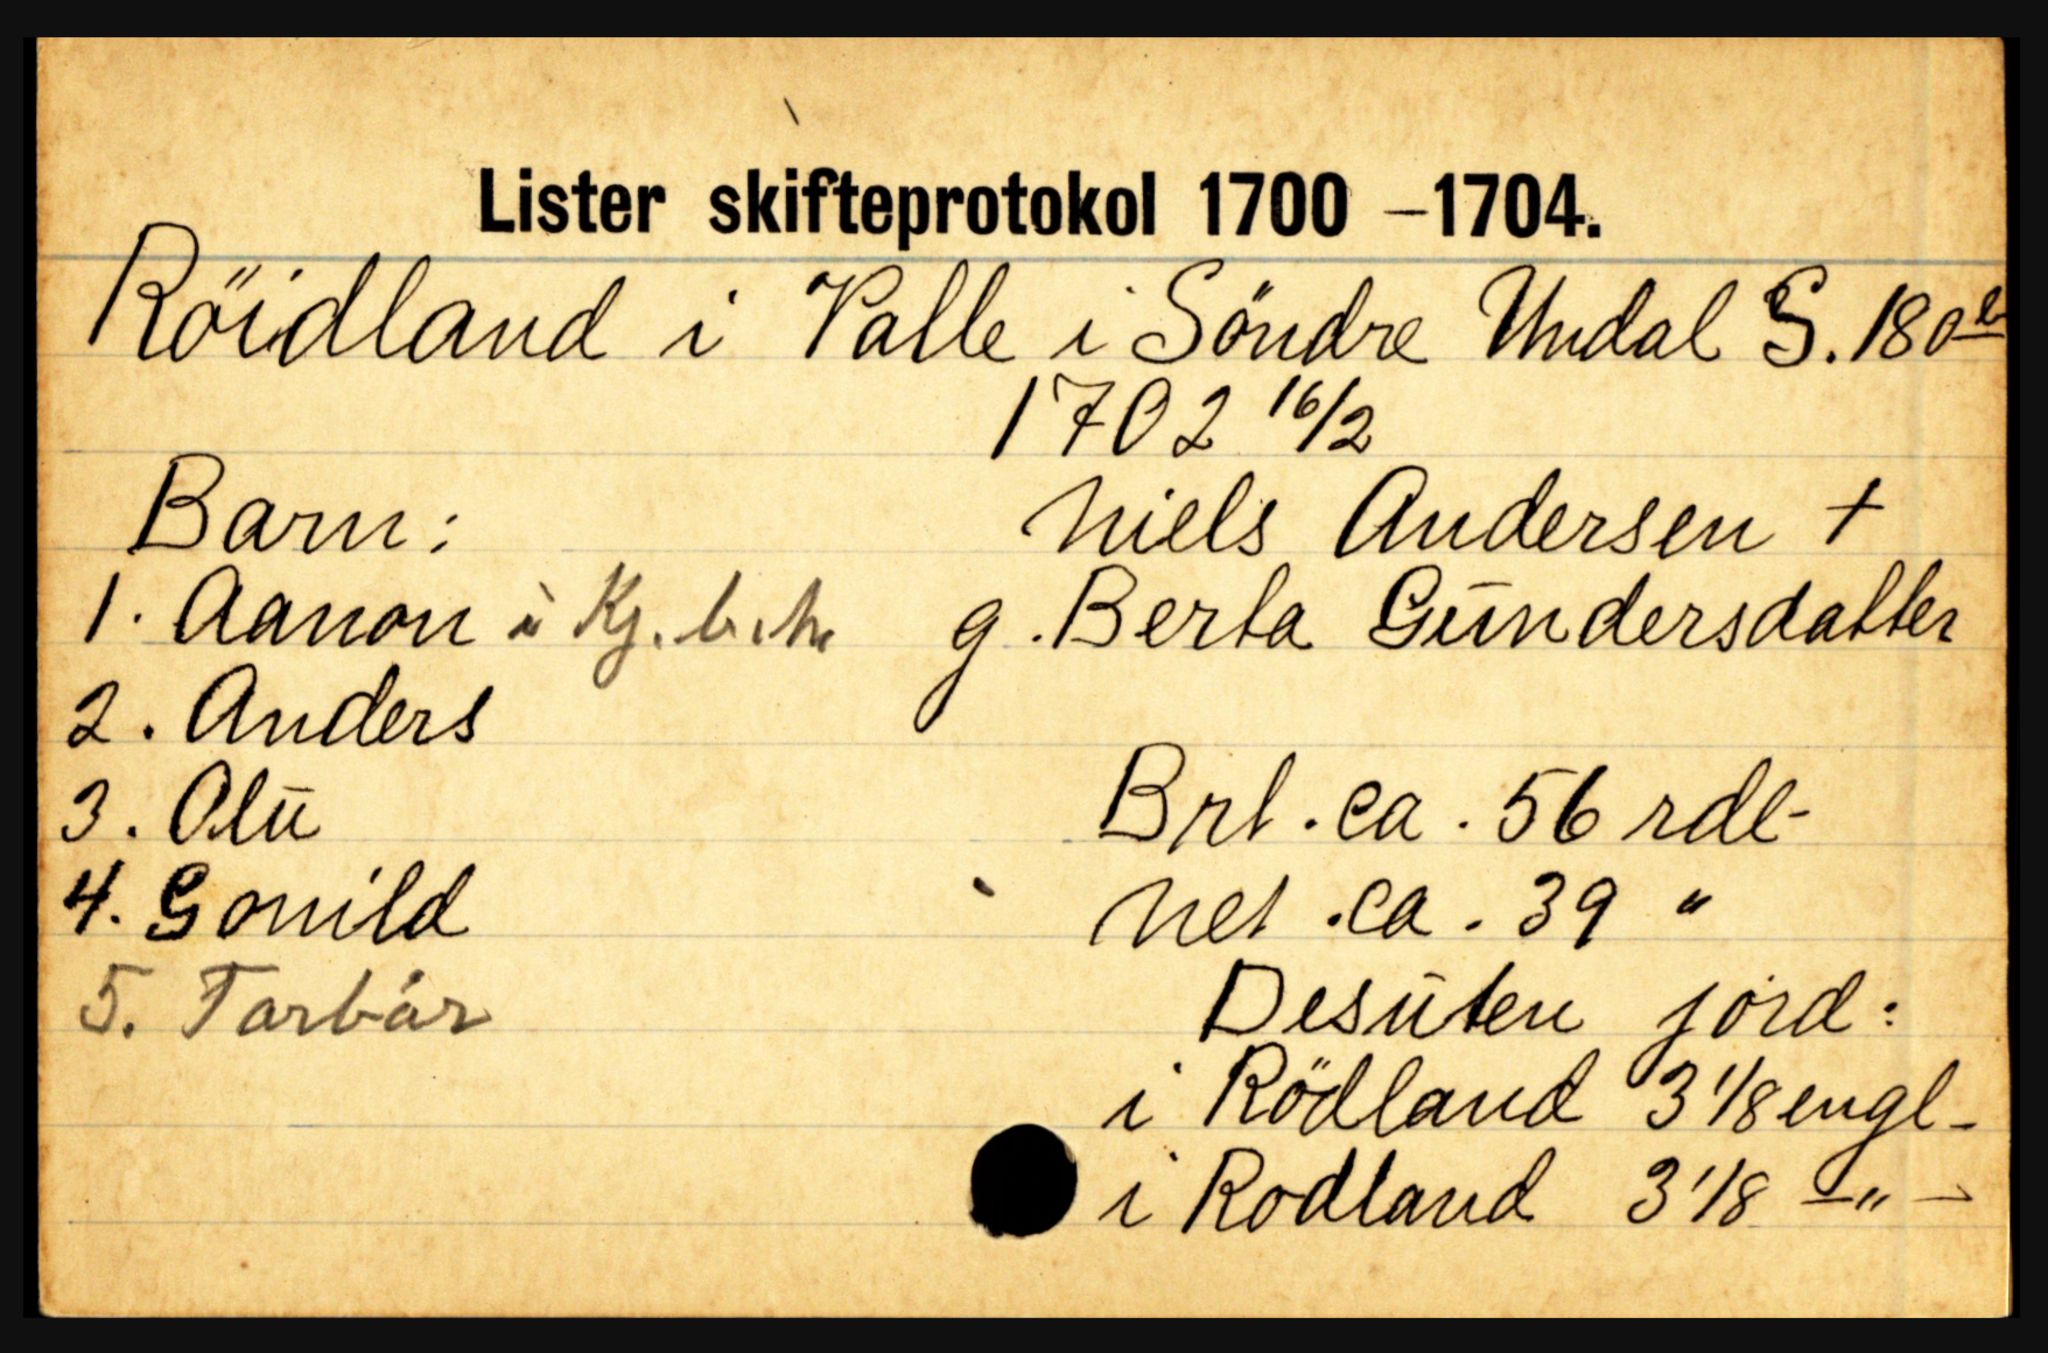 Lister skifteprotokol 1700 – 1704.
Röidland i Valle i Söndre Undal S. 180 b
1702 16/2
Barn:
Niels Andersen +
1. Aanon i Kj. b. h.
g. Berta Gūndersdatter
2. Anders
3. Olū
Brt. ca. 56 rdl-
4. Gonild
Net. ca. 39 "
5. Tarbár
Desūten jord:
i Rödland 3 1/8 engl-
i Rodland 3 1/8 –"–